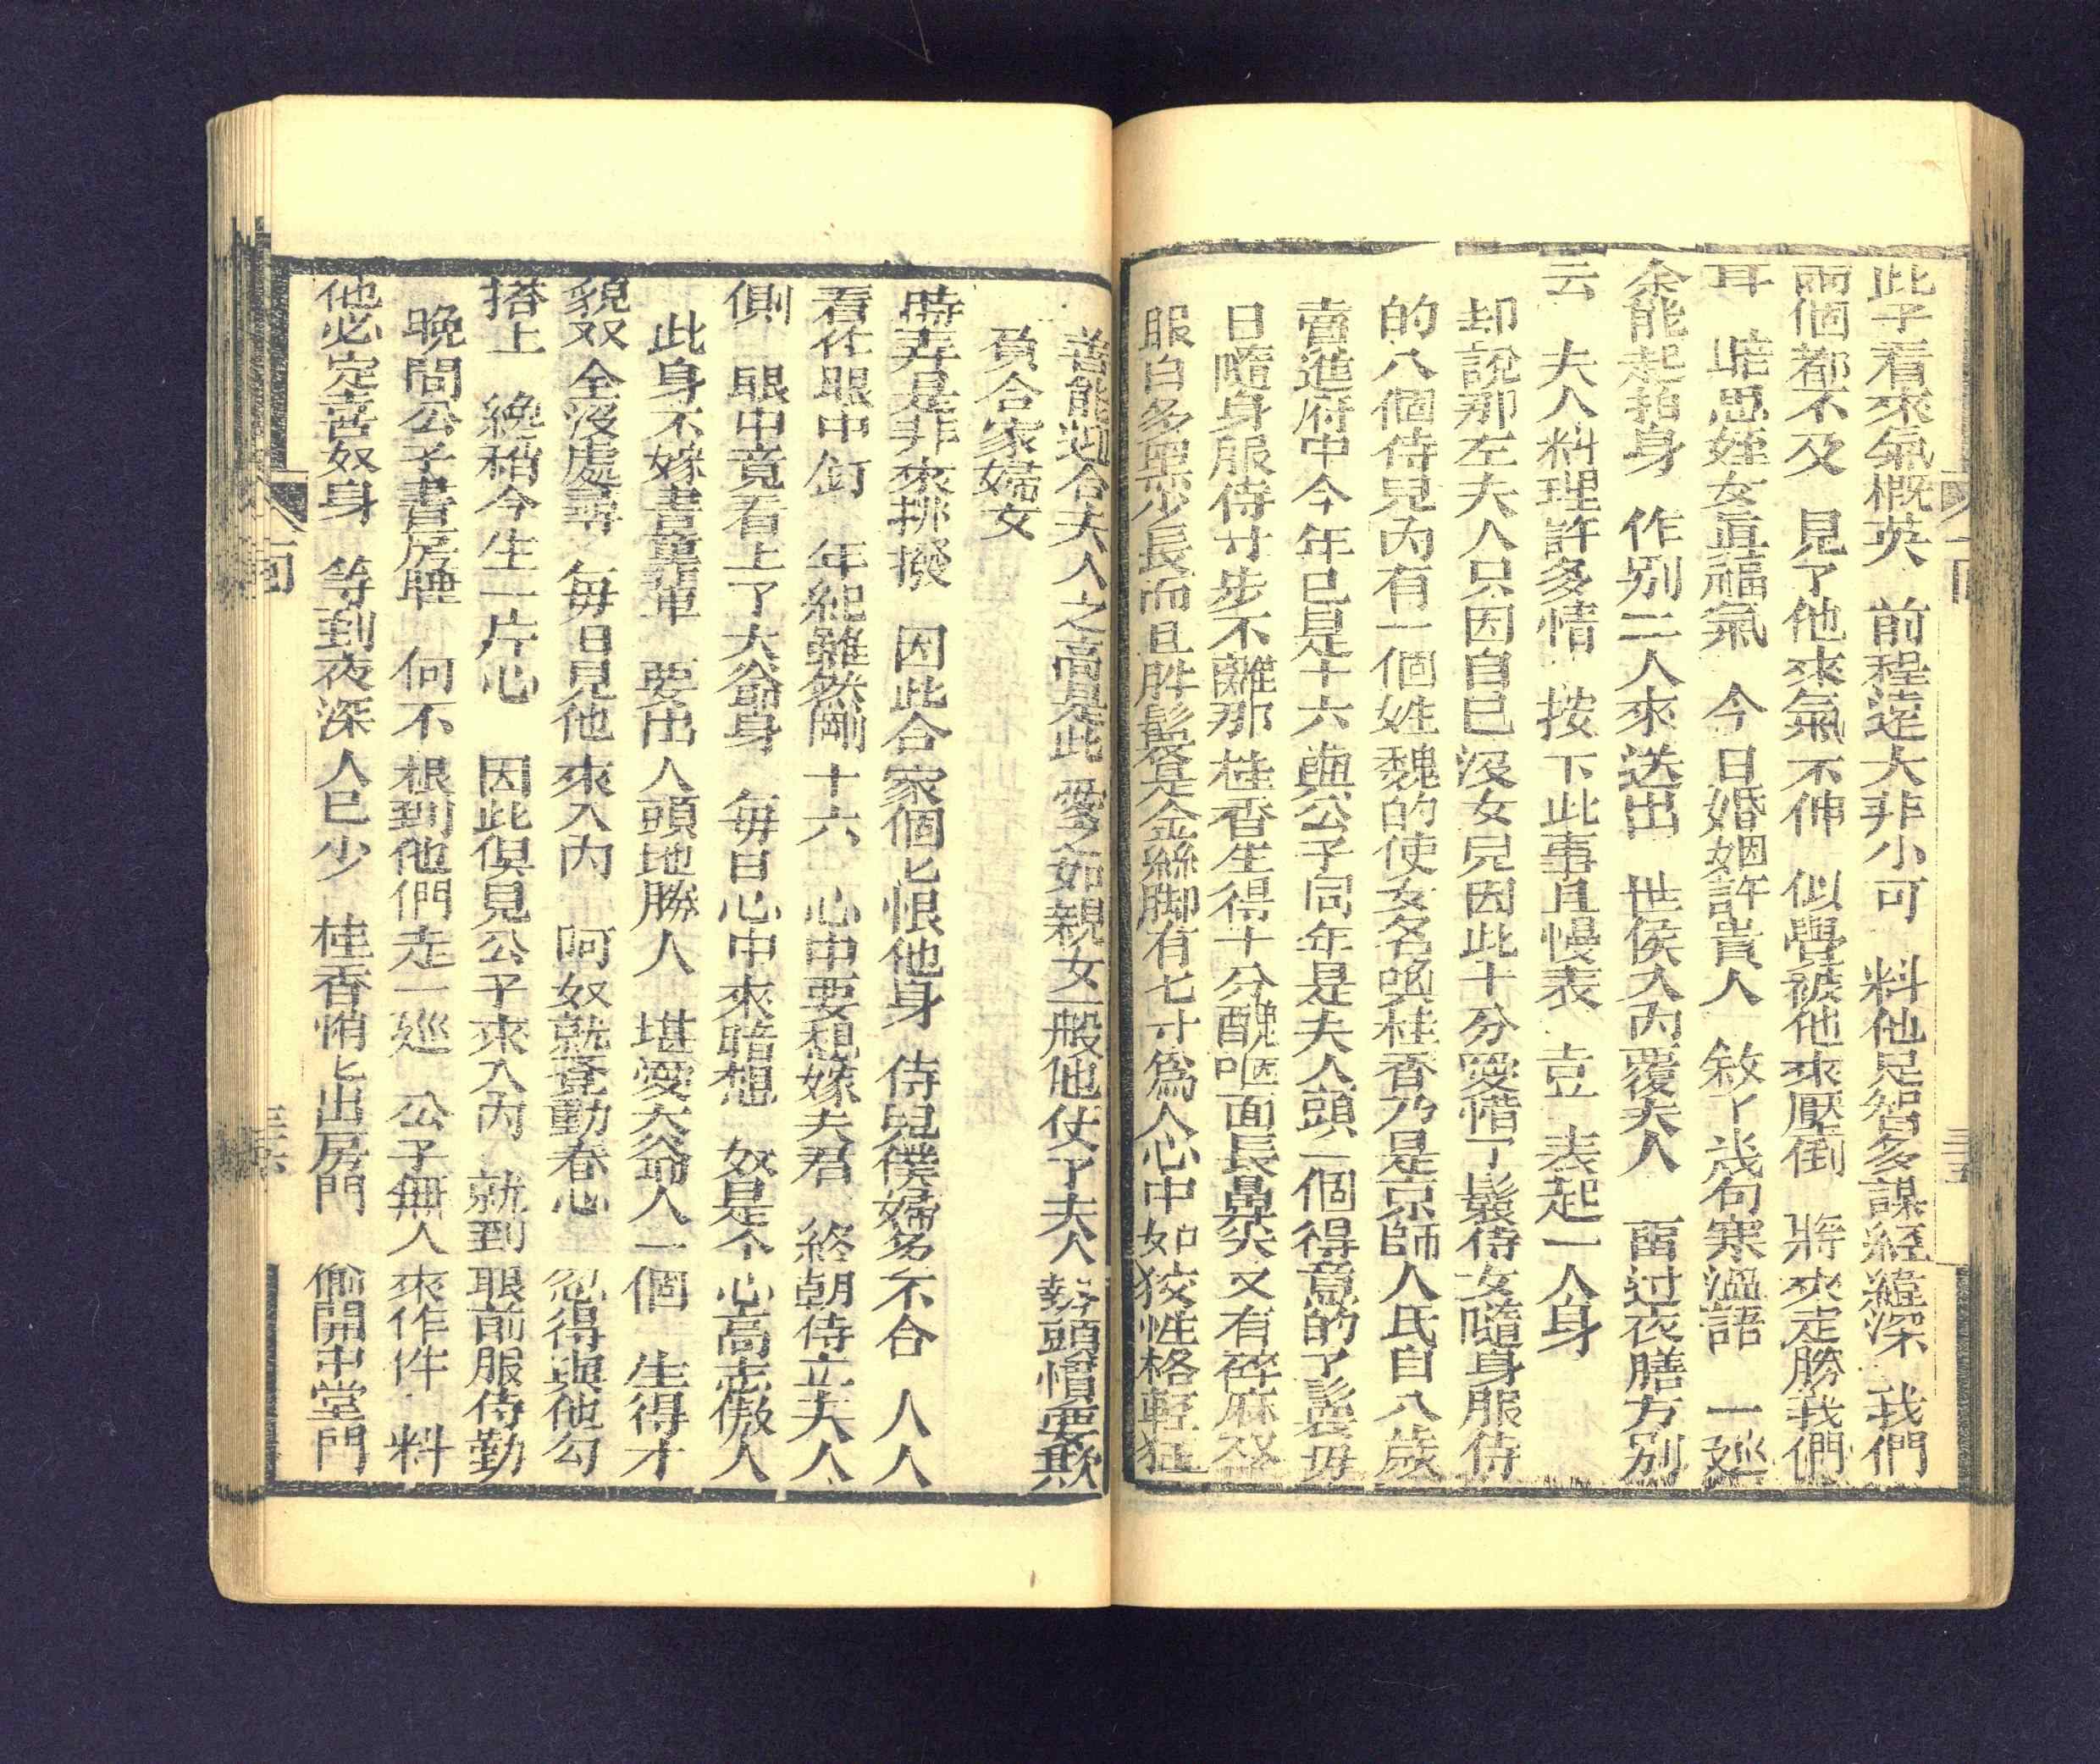 此子看來氣概英　前程遠大非小可　料他足智多謀經緯深　我們
兩個都不及　見了他來氣不伸　似覺被他來壓倒　將來走勝我們
耳　唯思姪女真福氣　今日婚姻許貴人　敘了幾句寒溫語　一廵
余能起抬身　作別二人來送出　世侯入內覆夫人　畱过夜膳方別
云　夫人料理許多情　按下此事且慢表　壴表起一人身
却說那左夫人只因自已沒女兒因此十分愛惜了鬟侍女隨身服侍
的八個侍兒內有一個姓魏的使女名喚桂香乃是京師人氏自八歲
賣進府中今年已是十六與公子同年是夫人頭一個得意的了鬟毋
日隨身服侍寸步不離那桂香生得十分醜嘔面長鼻尖又有碎麻双
眼白多黑少長而且胖髮是金絲脚有七寸爲人心中如狡性格輕狂
善能迎合夫人之高見此愛如親女一般他仗了夫人勢頭慣要欺
負合家婦女
時弄是非來挑撥　因此合家個匕恨他身　侍兒僕婦多不合　人人
看在眼中釘　年紀雖然剛十六　心中要想嫁夫君　終朝侍立夫人
側　眼中竟看上了大爺身　毎日心中來暗想　奴是个心高志傲人
此身不嫁書童輩　要出人頭地勝人　堪愛大爺人一個　生得才
貌双全沒處尋　毎日見他來入內　呵奴就竟動春心　忍得與他勾
搭上　纔稍今生一片心　因此俱見公子來入內　就到眼前服侍勤
晚間公子書房睡　何不根到他們走一廵　公子無人來作伴　料
他必定喜奴身　等到夜深人已少　桂香悄匕出房門　偷開中堂門